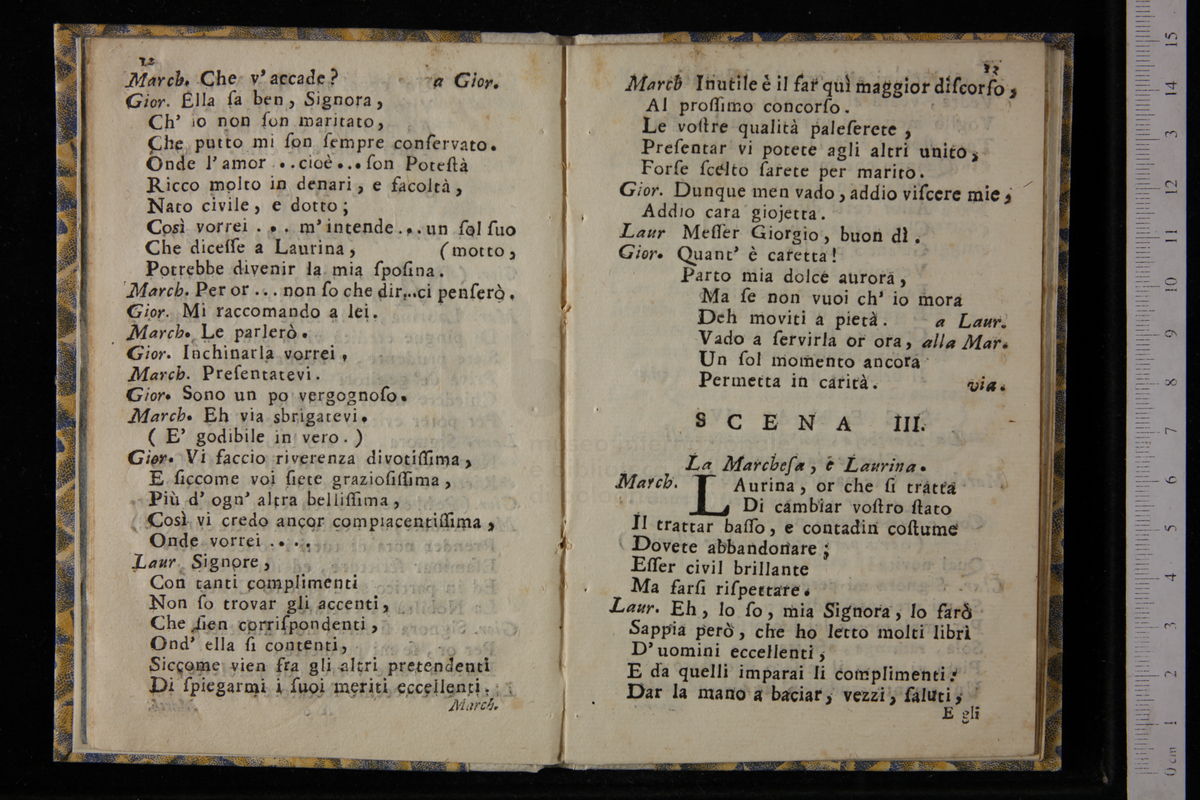 12
March. Che v' accade? a Gior.
Gior. Ella ſa ben, Signora,
Ch' io non ſon maritato,
Che putto mi ſon ſempre conſervato.
Onde l' amor ..cioè... ſon Poteſtà
Ricco molto in denari, e facoltà,
Nato civile, e dotto;
Così vorrei ... m' intende...un ſol ſuo
Che diceſſe a Laurina, (motto,
Potrebbe divenir la mia ſpoſina.
March. Per or ... non ſo che dir...ci penſerò.
Gior. Mi raccomando a lei.
March. Le parlerò.
Gior. Inchinarla vorrei,
March. Preſentatevi.
Gior. Sono un po vergognoſo.
March. Eh via sbrigatevi.
( E' godibile in vero. )
Gior. Vi faccio riverenza divotiſſima,
E ſiccome voi ſiete grazioſiſſima,
Più d' ogn' altra belliſſima,
Così vi credo ancor compiacentiſſima,
Onde vorrei ....
Laur Signore,
Con tanti complimenti
Non ſo trovar gli accenti,
Che ſien corriſpondenti,
Ond' ella ſi contenti,
Siccome vien fra gli altri pretendenti
Di ſpiegarmi i ſuoi meriti eccellenti.
March.
13
March Inutile è il far quì maggior diſcorſo,
Al proſſimo concorſo.
Le voſtre qualità paleſerete,
Preſentar vi potete agli altri unito,
Forſe ſcelto ſarete per marito.
Gior. Dunque men vado, addio viſcere mie,
Addio cara giojetta.
Laur Meſſer Giorgio, buon dì.
Gior. Quant' è caretta!
Parto mia dolce aurora,
Ma ſe non vuoi ch' io mora
Deh moviti a pietà. a Laur.
Vado a ſervirla or ora, alla Mar.
Un ſol momento ancora
Permetta in carità. via.
SCENA III.
La Marcheſa, e Laurina.
March. LAurina, or che ſi tratta
Di cambiar voſtro ſtato
Il trattar baſſo, e contadin coſtume
Dovete abbandonare;
Eſſer civil brillante
Ma farſi riſpettare.
Laur. Eh, lo ſo, mia Signora, lo farò
Sappia però, che ho letto molti libri
D' uomini eccellenti,
E da quelli imparai li complimenti.
Dar la mano a baciar, vezzi, ſaluti,
E gli